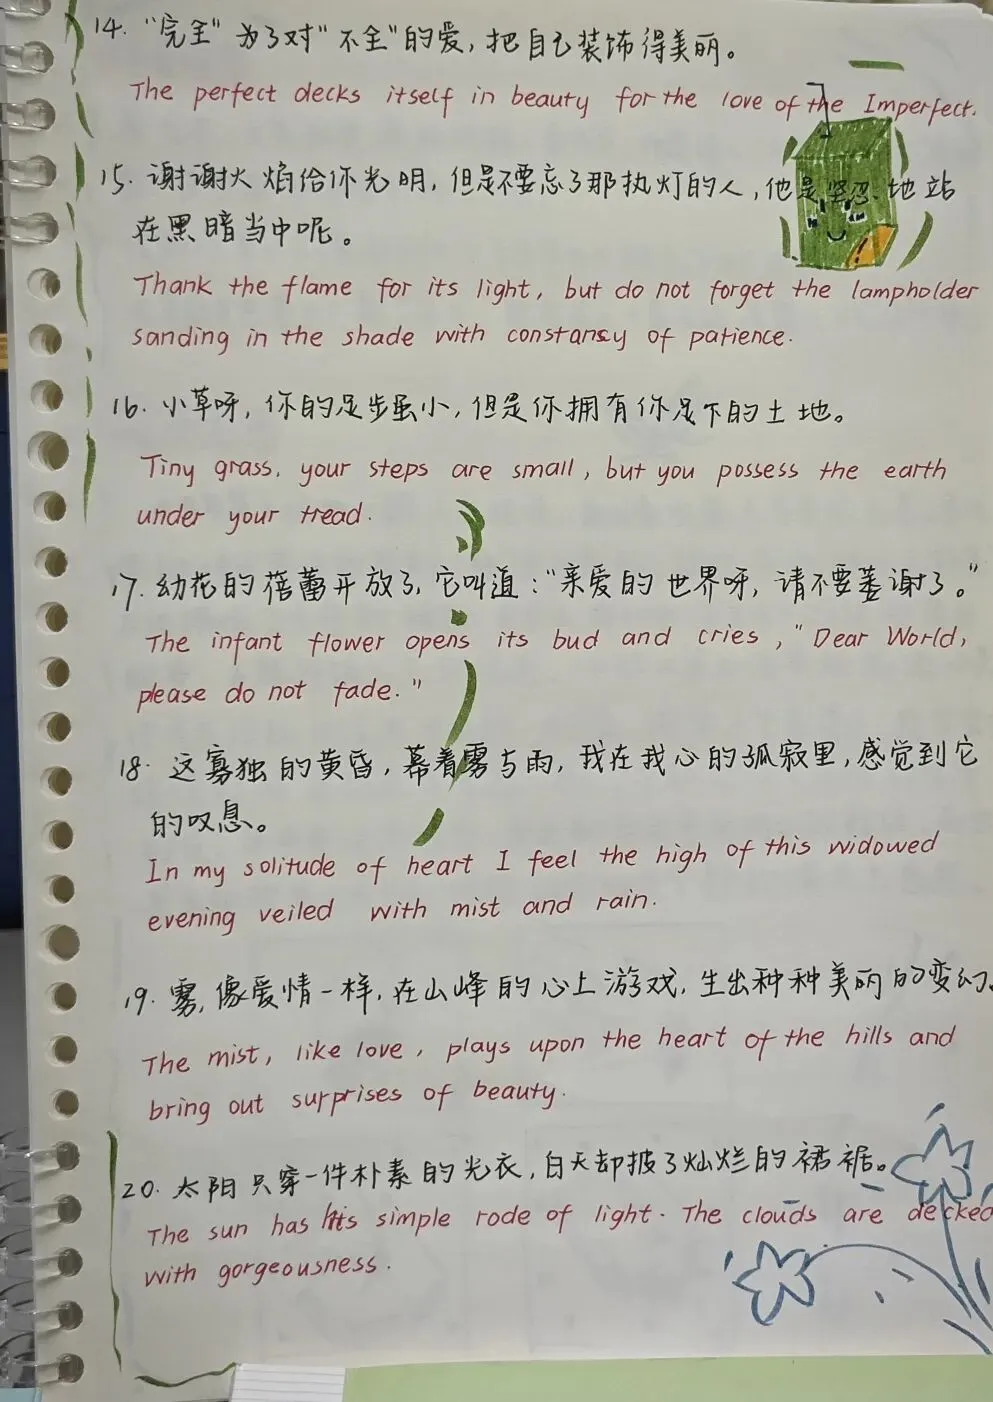 14. “完全”为了对“不全”的爱，把自己装饰得美丽。
The perfect decks itself in beauty for the love of the Imperfect.
15. 谢谢火焰给你光明，但是不要忘了那执灯的人，他是坚忍地站
在黑暗当中呢。
Thank the flame for its light, but do not forget the lampholder
sanding in the shade with constancy of patience.
16. 小草呀，你的足步虽小，但是你拥有你足下的土地。
Tiny grass, your steps are small, but you possess the earth
under your tread.
17. 幼花的蓓蕾开放了，它叫道：“亲爱的世界呀，请不要萎谢了。”
The infant flower opens its bud and cries, "Dear World,
please do not fade."
18. 这寡独的黄昏，幕着雾与雨，我在我心的孤寂里，感觉到它
的叹息。
In my solitude of heart I feel the high of this widowed
evening veiled with mist and rain.
19. 雾，像爱情一样，在山峰的心上游戏，生出种种美丽的变幻。
The mist, like love, plays upon the heart of the hills and
bring out surprises of beauty.
20. 太阳只穿一件朴素的光衣，白天却披了灿烂的裙裾。
The sun has his simple rode of light. The clouds are decked
with gorgeousness.